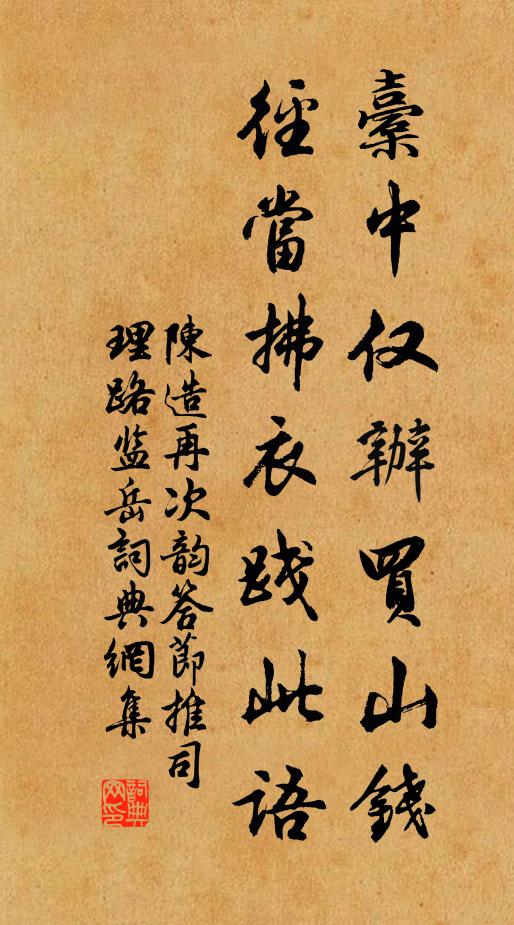 橐中仅辦買山錢
徑當拂衣踐此語
陳造再次韵答節推司
理路监岳詞典網集
詞典网印